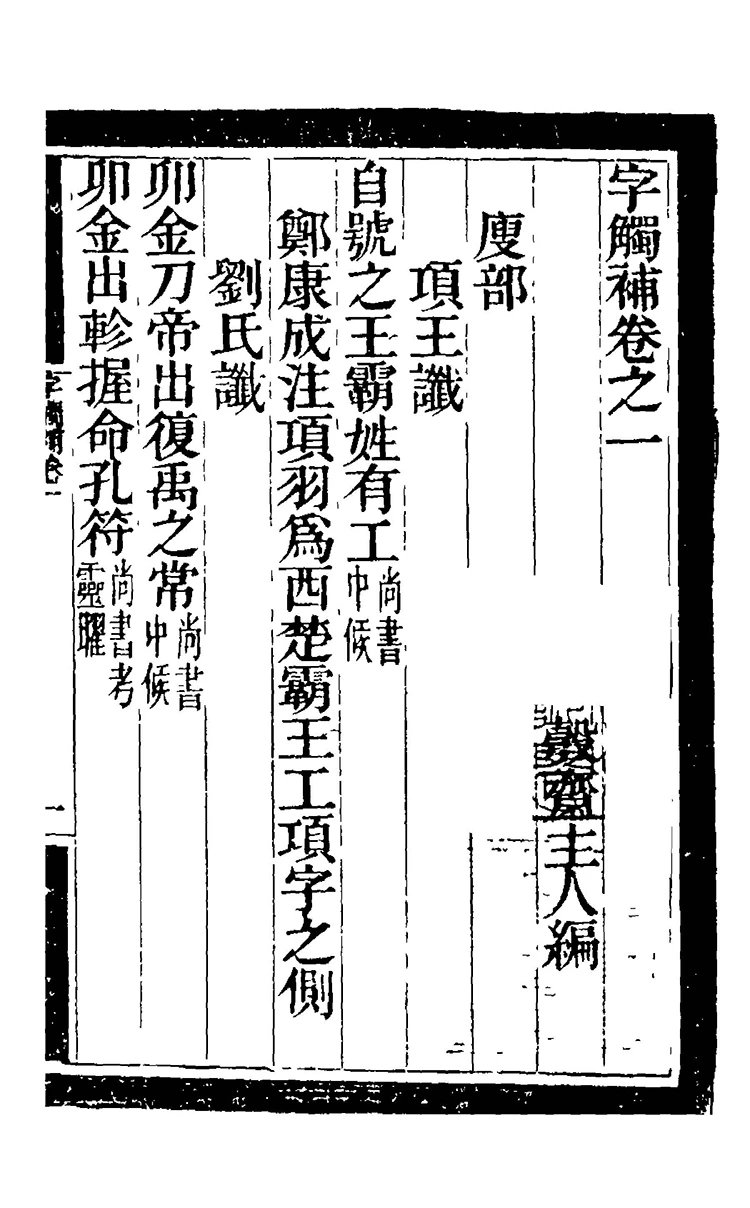 字觸補卷之一
㲄齋主人編
廋部
項王讖
自號之王霸姓有工尚書中候
鄭康成注項羽爲西楚霸王工項字之側
劉氏讖
卯金刀帝出復禹之常尚書中候
卯金出軫握命孔符尚書考靈曜
字觸補卷一
一